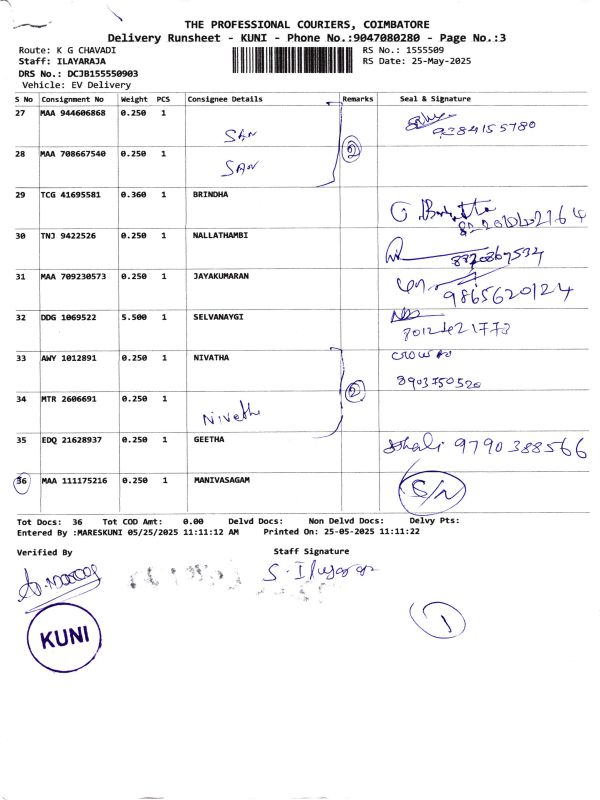 THE PROFESSIONAL COURIERS, COIMBATORE
Delivery Runsheet - KUNI - Phone No.:9047080280 - Page No.:3
Route: K G CHAVADI RS No.: 1555509
Staff: ILAYARAJA RS Date: 25-May-2025
DRS No.: DCJB155550903
Vehicle: EV Delivery
S No Consignment No Weight PCS Consignee Details Remarks Seal & Signature
27 MAA 944606868 0.250 1 SAN 9384155780
28 MAA 708667540 0.250 1 SAN 2
29 TCG 41695581 0.360 1 BRINDHA
30 TNJ 9422526 0.250 1 NALLATHAMBI 8820867534
31 MAA 709230573 0.250 1 JAYAKUMARAN 9865620124
32 DDG 1069522 5.500 1 SELVANAYGI
33 AWY 1012891 0.250 1 NIVATHA 8903750520
34 MTR 2606691 0.250 1 Nivatha 2
35 EDQ 21628937 0.250 1 GEETHA 9790388566
36 MAA 111175216 0.250 1 MANIVASAGAM S/N
Tot Docs: 36 Tot COD Amt: 0.00 Delvd Docs: Non Delvd Docs: Delvy Pts:
Entered By :MARESKUNI 05/25/2025 11:11:12 AM Printed On: 25-05-2025 11:11:22
Verified By Staff Signature
S. Ilayaraja
KUNI
1